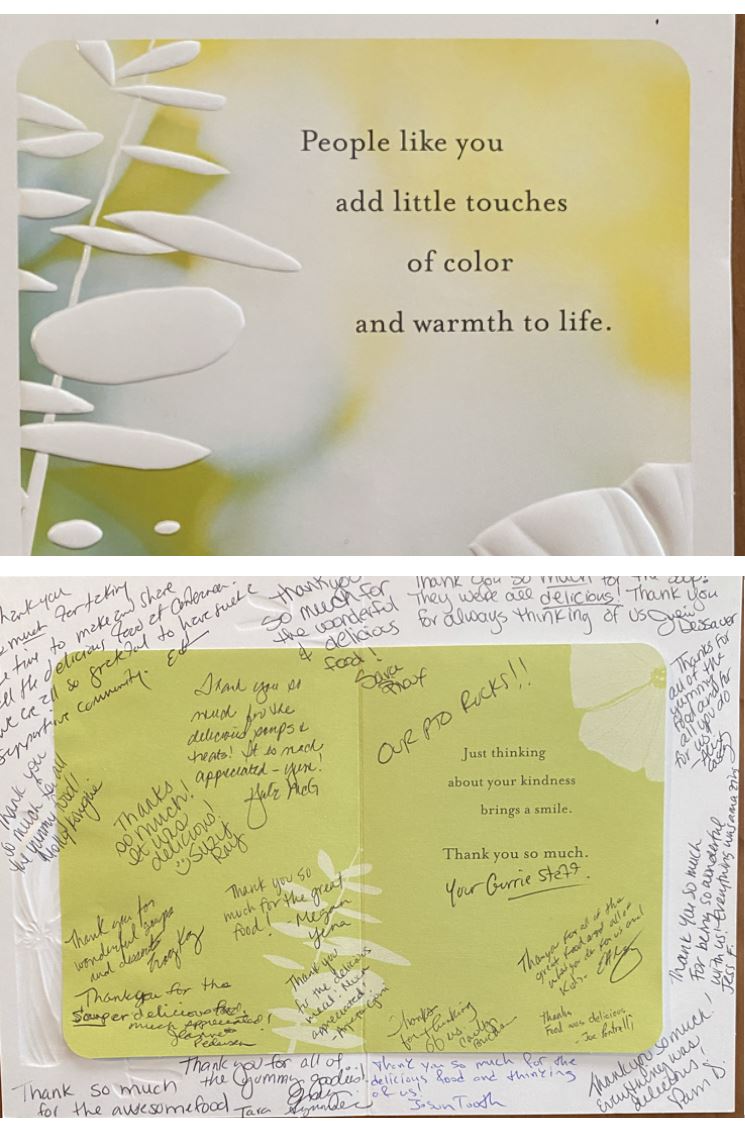 People like you
add little touches
of color
and warmth to life.
thank you
much for taking
time to make and share
the delicious food at
we're all so grateful to have such a
supportive community.
thank you
so much for
the wonderful
& delicious
food!
Sara
Thank you so much for the
They were all delicious! Thank you
for always thinking of us
Dessauer
Thanks for
all of the
yummy
food and for
all you do
for us
Thank you so
much for the
delicious soups &
treats! It so much
appreciated - yum!
Julie McG
OUR PTO ROCKS!!
Just thinking
about your kindness
brings a smile.
Thank you so much.
Your Currie Staff
Thank you
so much for all
the yummy food!
Thanks
so much!
It was
delicious!
Suzy
Ray
Thank you so
much for the great
food! - Megan
Thank you for
wonderful soups
and desserts
Thank you
for the delicious
meal. Much
appreciated!
Thank you for all of the
great food and all of
what you do for us and
Kids.
Thank you so much
For being so wonderful
with us! Everything was amazing
Jess F.
Thank you for the
souper delicious food,
much appreciated!
Jeannette
Pedersen
Thanks
for thinking
of us
Thanks
Food was delicious
- Joe
Thank you so much!
Everything was
delicious,
Pam D.
Thank you for all of
the yummy goodies!
Thank so much
for the awesome food
Tara
Thank you so much for the
delicious food and thinking
of us!
Jason Tooth